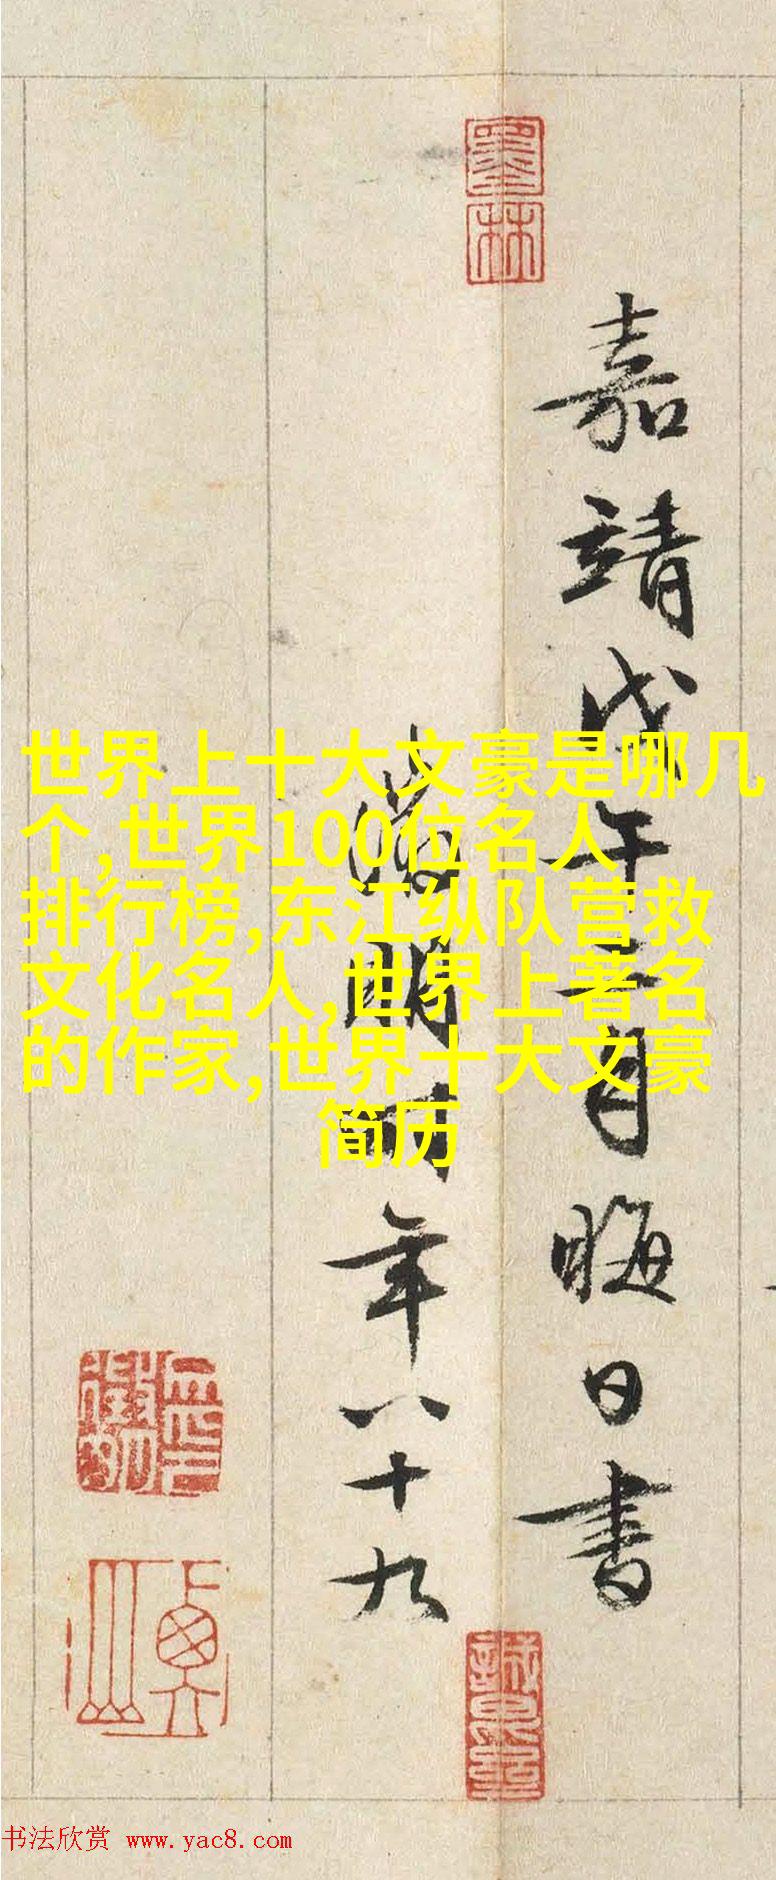 墨林
嘉靖戊午月晦日書
徵明時年八十九
世界上十大文豪是哪几
个,世界100位名人
排行榜,东江纵队营救
文化名人,世界上著名
的作家,世界十大文豪
简历
衡山
书法欣赏 www.yac8.com